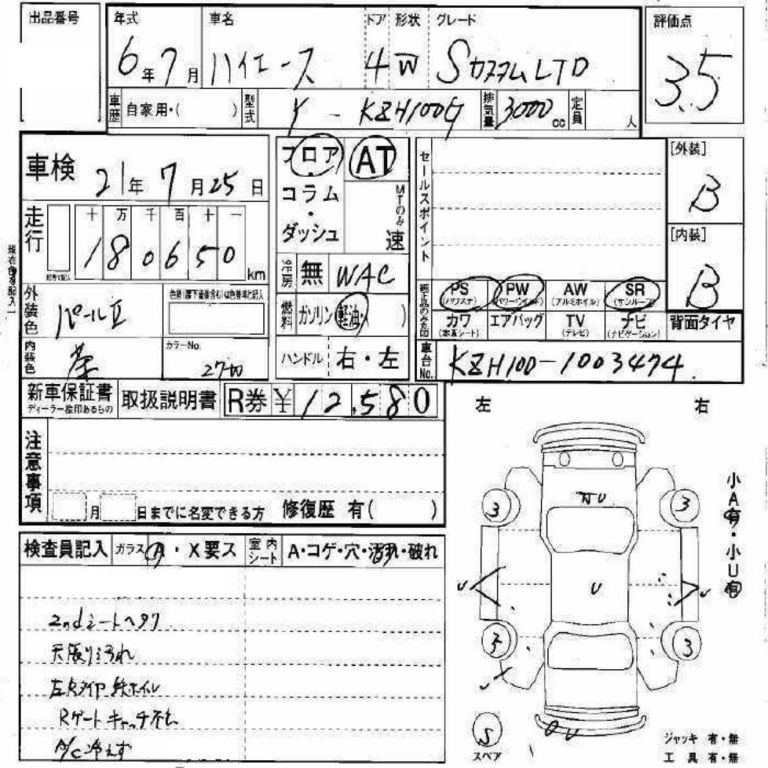 出品番号
年式 車名 ドア 形状 グレード 評価点
6年7月 ハイエース 4 W SカスタムLTD 3.5
車歴 自家用・( ) 型式 Y - KZH100G 排気量 3000cc 定員 人
車検 21年7月25日
フロア AT
コラム・ MTのみ
ダッシュ 速
セールスポイント
[外装]
B
[内装]
B
走行 十万千百十一
180650km
冷房 無 WAC
純正品のみ○印
PS (パワステ) PW (パワーウインド) AW (アルミホイル) SR (サンルーフ)
カワ (本革シート) エアバッグ TV (テレビ) ナビ (ナビゲーション) 背面タイヤ
外装色 パールII
燃料 ガソリン 軽油・( )
内装色 茶 カラーNo.
ハンドル 右・左
車台No. KZH100-1003474
新車保証書 取扱説明書 R券 ¥ 12,580
ディーラー捺印あるもの
左 右
注意事項
月 日までに名変できる方 修復歴 有( )
検査員記入 ガラス A・X要ス 室内シート A・コゲ・穴・汚れ・破れ
2ndシートヘタリ
天張り汚れ
左Rタイヤ鉄ホイル
Rゲートキャッチ不
A/C冷えず
NU
U
3 3
U U
3 3
UU
S
スペア
小A有・小U有
ジャッキ 有・無
工具 有・無